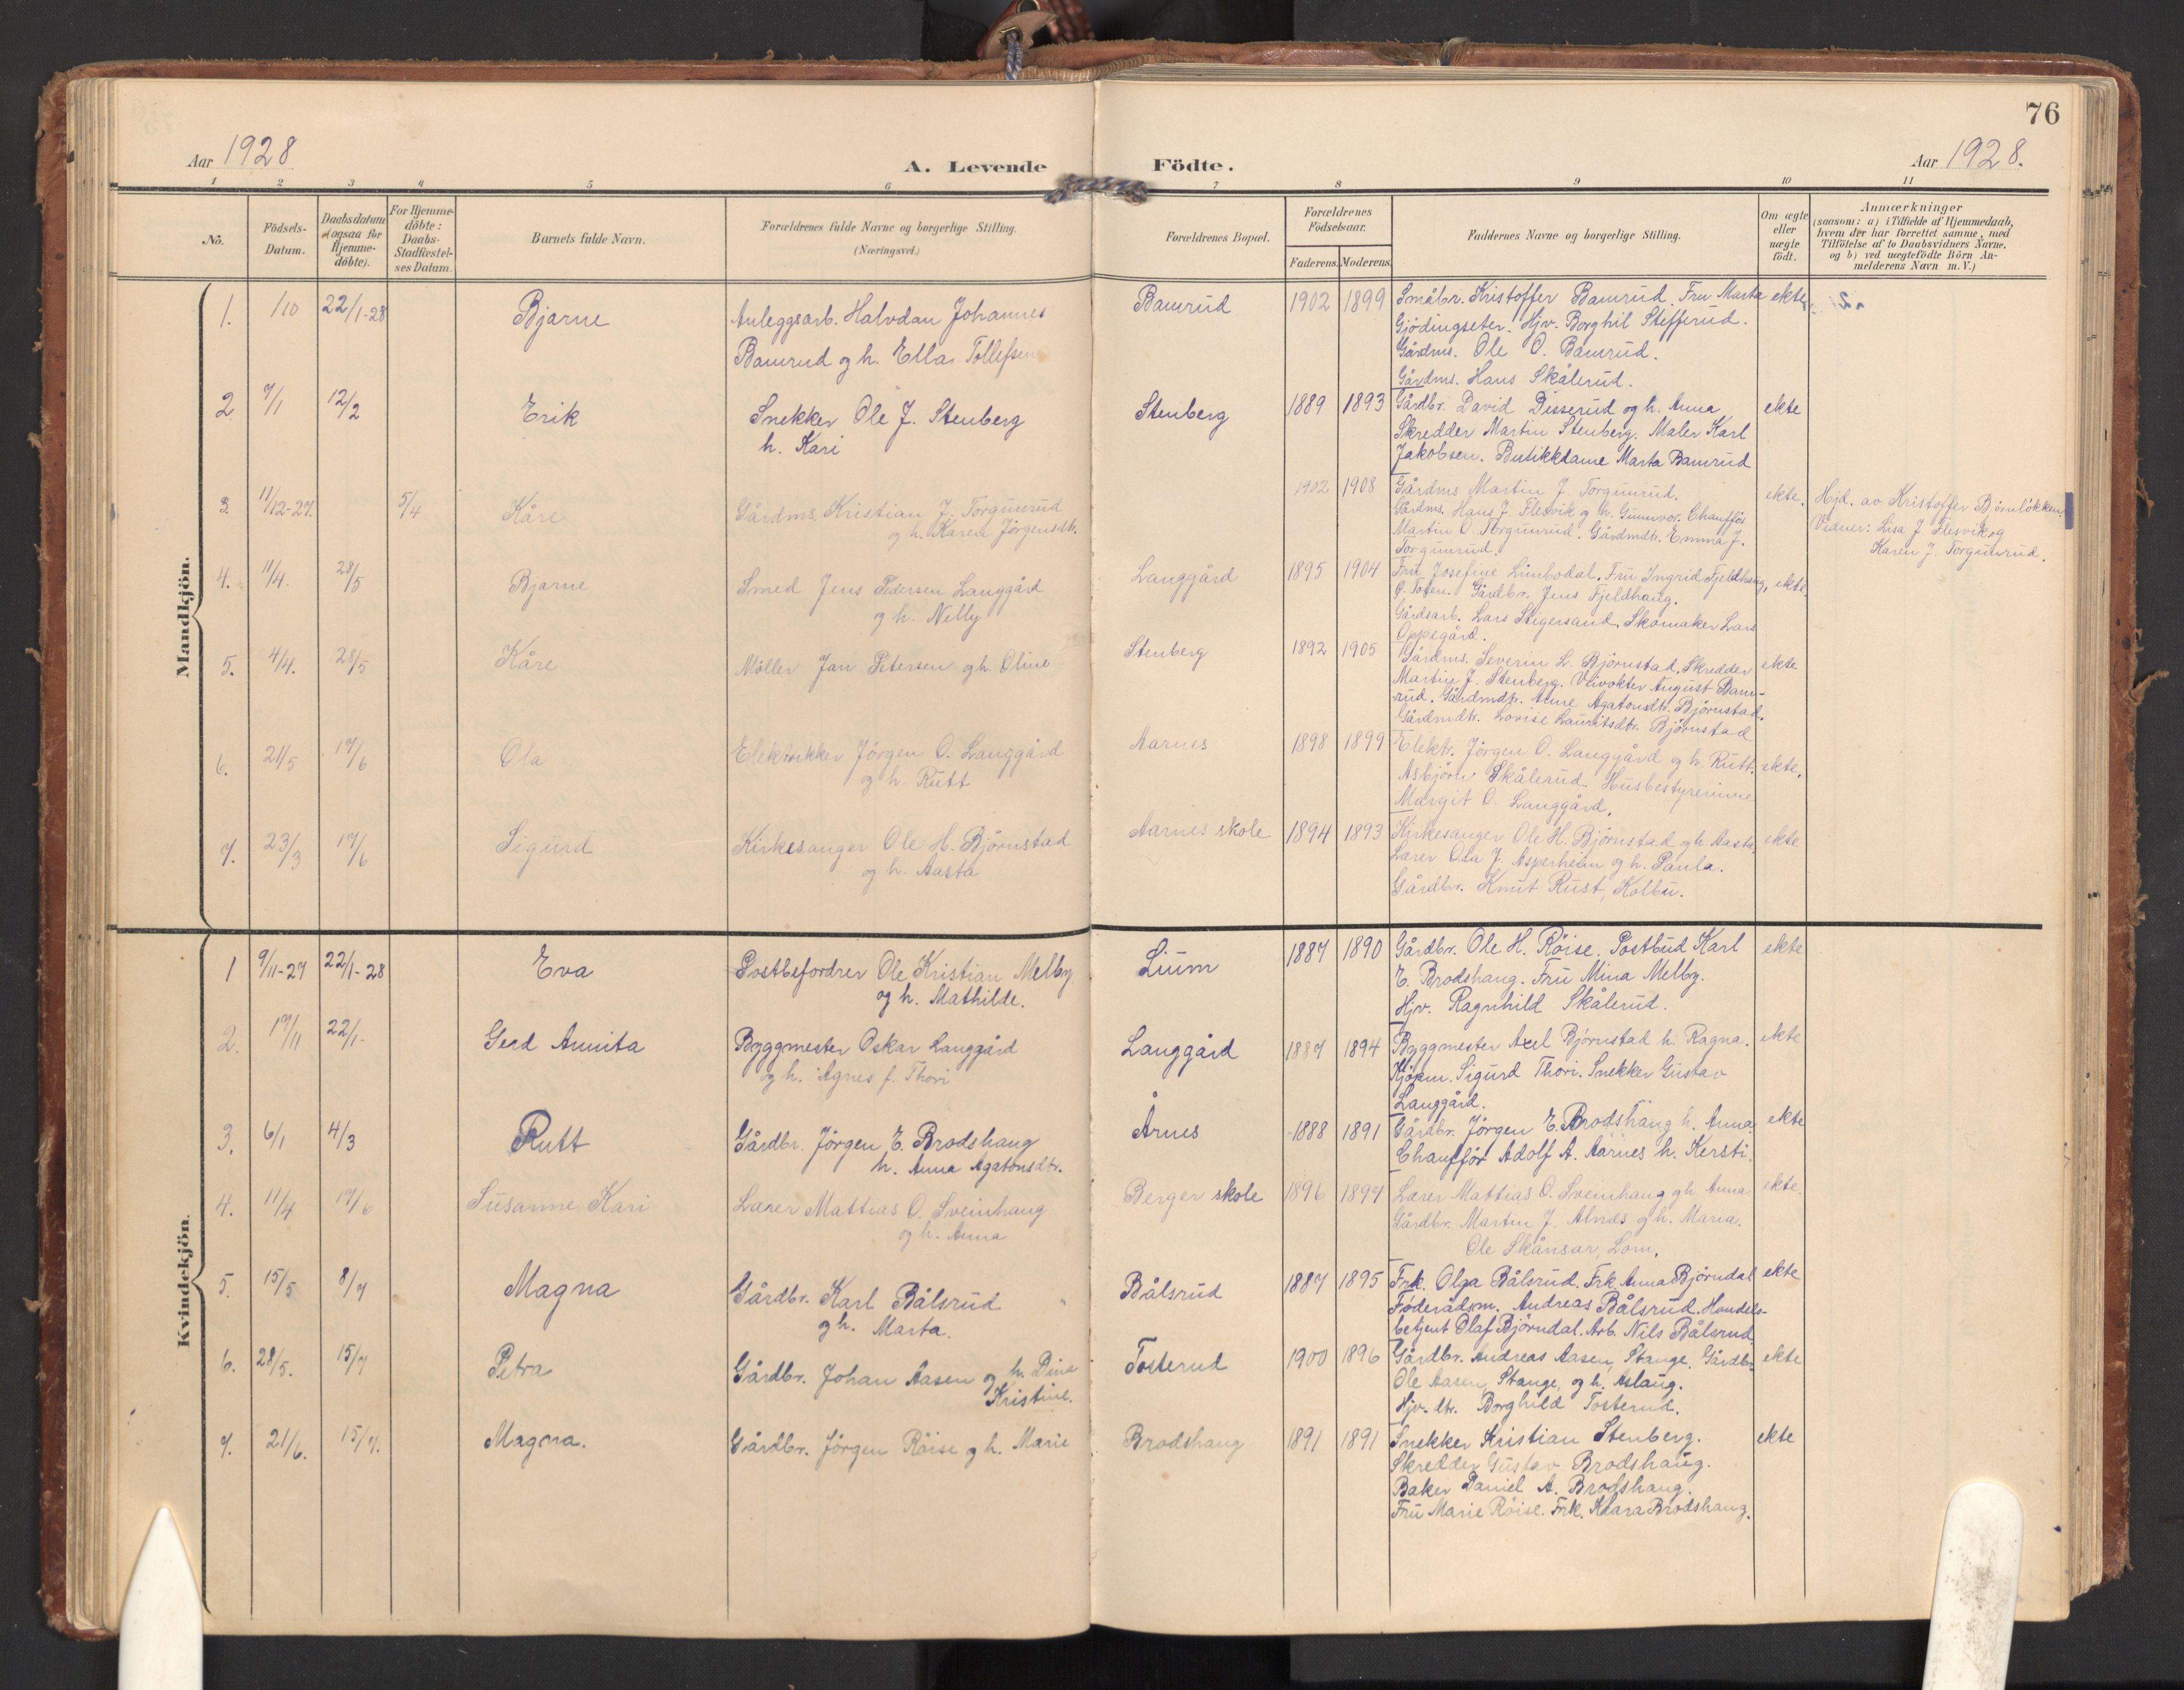 76
Aar 1928
A. Levende Födte.
Aar 1928.
1 2 3 4 5 6 7 8 9 10 11
No.
Födsels-
Datum.
Daabsdatum
(ogsaa for
Hjemme-
döbte).
For Hjemme-
döbte:
Daabs-
Stadfæstel-
ses Datum.
Barnets fulde Navn.
Forældrenes fulde Navne og borgerlige Stilling.
(Næringsvei.)
Forældrenes Bopæl.
Forældrenes
Födselsaar.
Faderens. Moderens.
Faddernes Navne og borgerlige Stilling.
Om ægte
eller
uægte
födt.
Anmærkninger
(saasom: a) i Tilfælde af Hjemmedaab,
hvem der har forrettet samme, med
Tilföielse af to Daabsvidners Navne,
og b) ved uægtefödte Börn An-
melderens Navn m. V.)
Mandkjön.
1. 1/10 22/1-28 Bjarne Anleggsarb. Halvdan Johannes Bamrud 1902 1899 Småbr. Kristoffer Bamrud. Fru Marta ekte
Bamrud og h. Ella Tollefsen Gjödingseter. Hjv. Borghil Stefferud.
Gårdms. Ole O. Bamrud.
Gårdms. Hans Skålerud.
2 7/1 12/2 Erik Snekker Ole J. Stenberg Stenberg 1889 1893 Gårdbr. David Disserud og h. Anna ekte
h. Kari Skredder Martin Stenberg. Maler Karl
Jakobsen. Butikkdame Marta Bamrud
3. 11/12-27. 5/4 Kåre Gårdms. Kristian J. Torgunrud 1902 1908 Gårdms Martin J. Torgunrud. ekte. Hjd. av Kristoffer Björnlökken.
og h. Karen Jörgensdtr. Gårdms. Hans J. Flesvik og h. Gunnvor. Chafför Vidner: Lisa J. Flesvik og
Martin O. Torgunrud. Gårdmdtr. Emma J. Karen J. Torgunrud.
Torgunrud.
4. 11/4. 28/5 Bjarne Smed Jens Pedersen Langgård Langgård 1895 1904 Fru Josefine Limbodal. Fru Ingrid Fjeldhaug, ekte.
og h. Nelly Ö. Toten. Gårdbr. Jens Fjeldhaug.
Gårdsarb. Lars Stigersand. Skomaker Lars
Oppegård.
5. 4/4. 28/5 Kåre Möller Jan Petersen og h. Oline Stenberg 1892 1905 Gårdms. Severin L. Björnstad. Skredder ekte
Martin J. Stenberg. Veivokter August Bam-
rud. Gårdmdtr. Anne Agatonsdtr. Björnstad.
Gårdmdtr. Lovise Lauritsdtr. Björnstad
6. 21/5 17/6 Ola Elektrikker Jörgen O. Langgård Aarnes 1898 1899 Elektr. Jörgen O. Langgård og h. Rutt. ekte.
og h. Rutt Asbjörn Skålerud. Husbestyrerinne
Margit O. Langgård.
7. 23/3 17/6 Sigurd Kirkesanger Ole H. Björnstad Aarnes skole 1894 1893 Kirkesanger Ole H. Björnstad og h. Aasta. ekte
og h. Aasta Lærer Ola J. Asperheim og h. Paula.
Gårdbr. Knut Rust, Kolbu.
Kvindekjön.
1 9/11-27 22/1-28 Eva Postbefordrer Ole Kristian Melby Lium 1887 1890 Gårdbr. Ole H. Röise. Postbud Karl ekte
og h. Mathilde. E. Brodshaug. Fru Mina Melby.
Hjv. Ragnhild Skålerud.
2. 17/11 22/1- Gerd Annita Byggmester Oskar Langgård Langgård 1887 1894 Byggmester Axel Björnstad h. Ragna. ekte
og h. Agnes f. Thori Kjöpm. Sigurd Thori. Snekker Gustav
Langgård.
3. 6/1 4/3 Rutt Gårdbr. Jörgen E. Brodshaug Årnes 1888 1891 Gårdbr. Jörgen E. Brodshaug h. Anna. ekte
h. Anna Agatonsdtr. Chafför Adolf A. Aarnes h. Kersti.
4. 11/4 17/6 Susanne Kari Lærer Mattias O. Sveinhaug Berger skole 1896 1897 Lærer Mattias O. Sveinhaug og h. Anna ekte.
og h. Anna Gårdbr. Martin J. Alnæs og h. Maria.
Ole Skånsar, Lom.
5. 15/5 8/7 Magna Gårdbr. Karl Bålsrud Bålsrud 1887 1895 Frk. Olga Bålsrud. Frk Anna Björndal ekte
og h. Marta. Föderådsm. Andreas Bålsrud. Handels-
betjent Olaf Björndal. Arb. Nils Bålsrud
6. 28/5. 15/7 Petra Gårdbr. Johan Aasen og h. Dina Tosterud 1900 1896 Gårdbr. Andreas Aasen, Stange. Gårdbr. ekte
Kristine. Ole Aasen, Stange, og h. Aslaug.
Hjv. dtr. Borghild Tosterud.
7. 21/6. 15/7. Magna. Gårdbr. Jörgen Röise og h. Marie Brodshaug 1891 1891 Snekker Kristian Stenberg. ekte
Skredder Gustav Brodshaug.
Baker Daniel A. Brodshaug.
Fru Marie Röise. Frk. Klara Brodshaug.